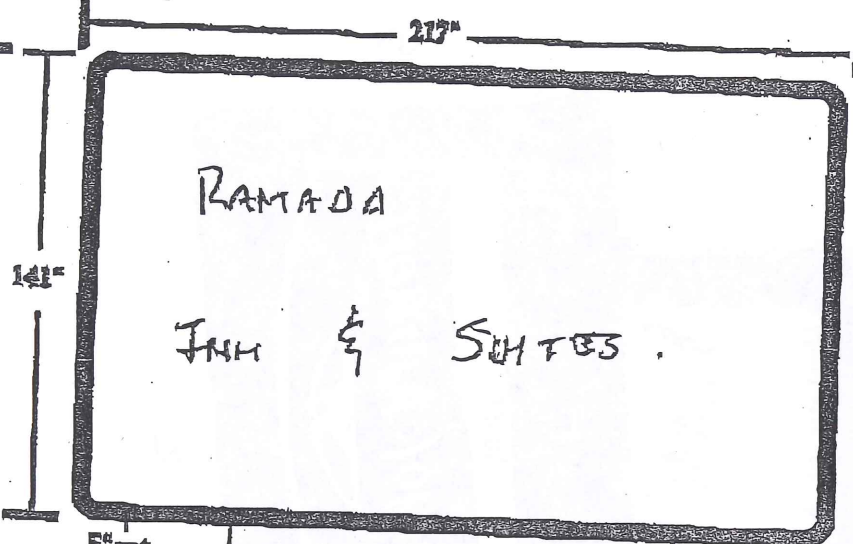 217"
141"
RAMADA
INN & SUITES.